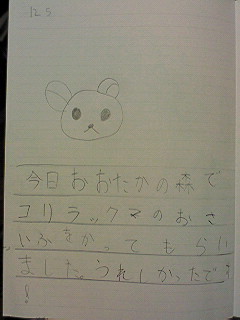 12.5
今日おおたかの森で
コリラックマのおさ
いふをかってもらい
ました。うれしかったです
!